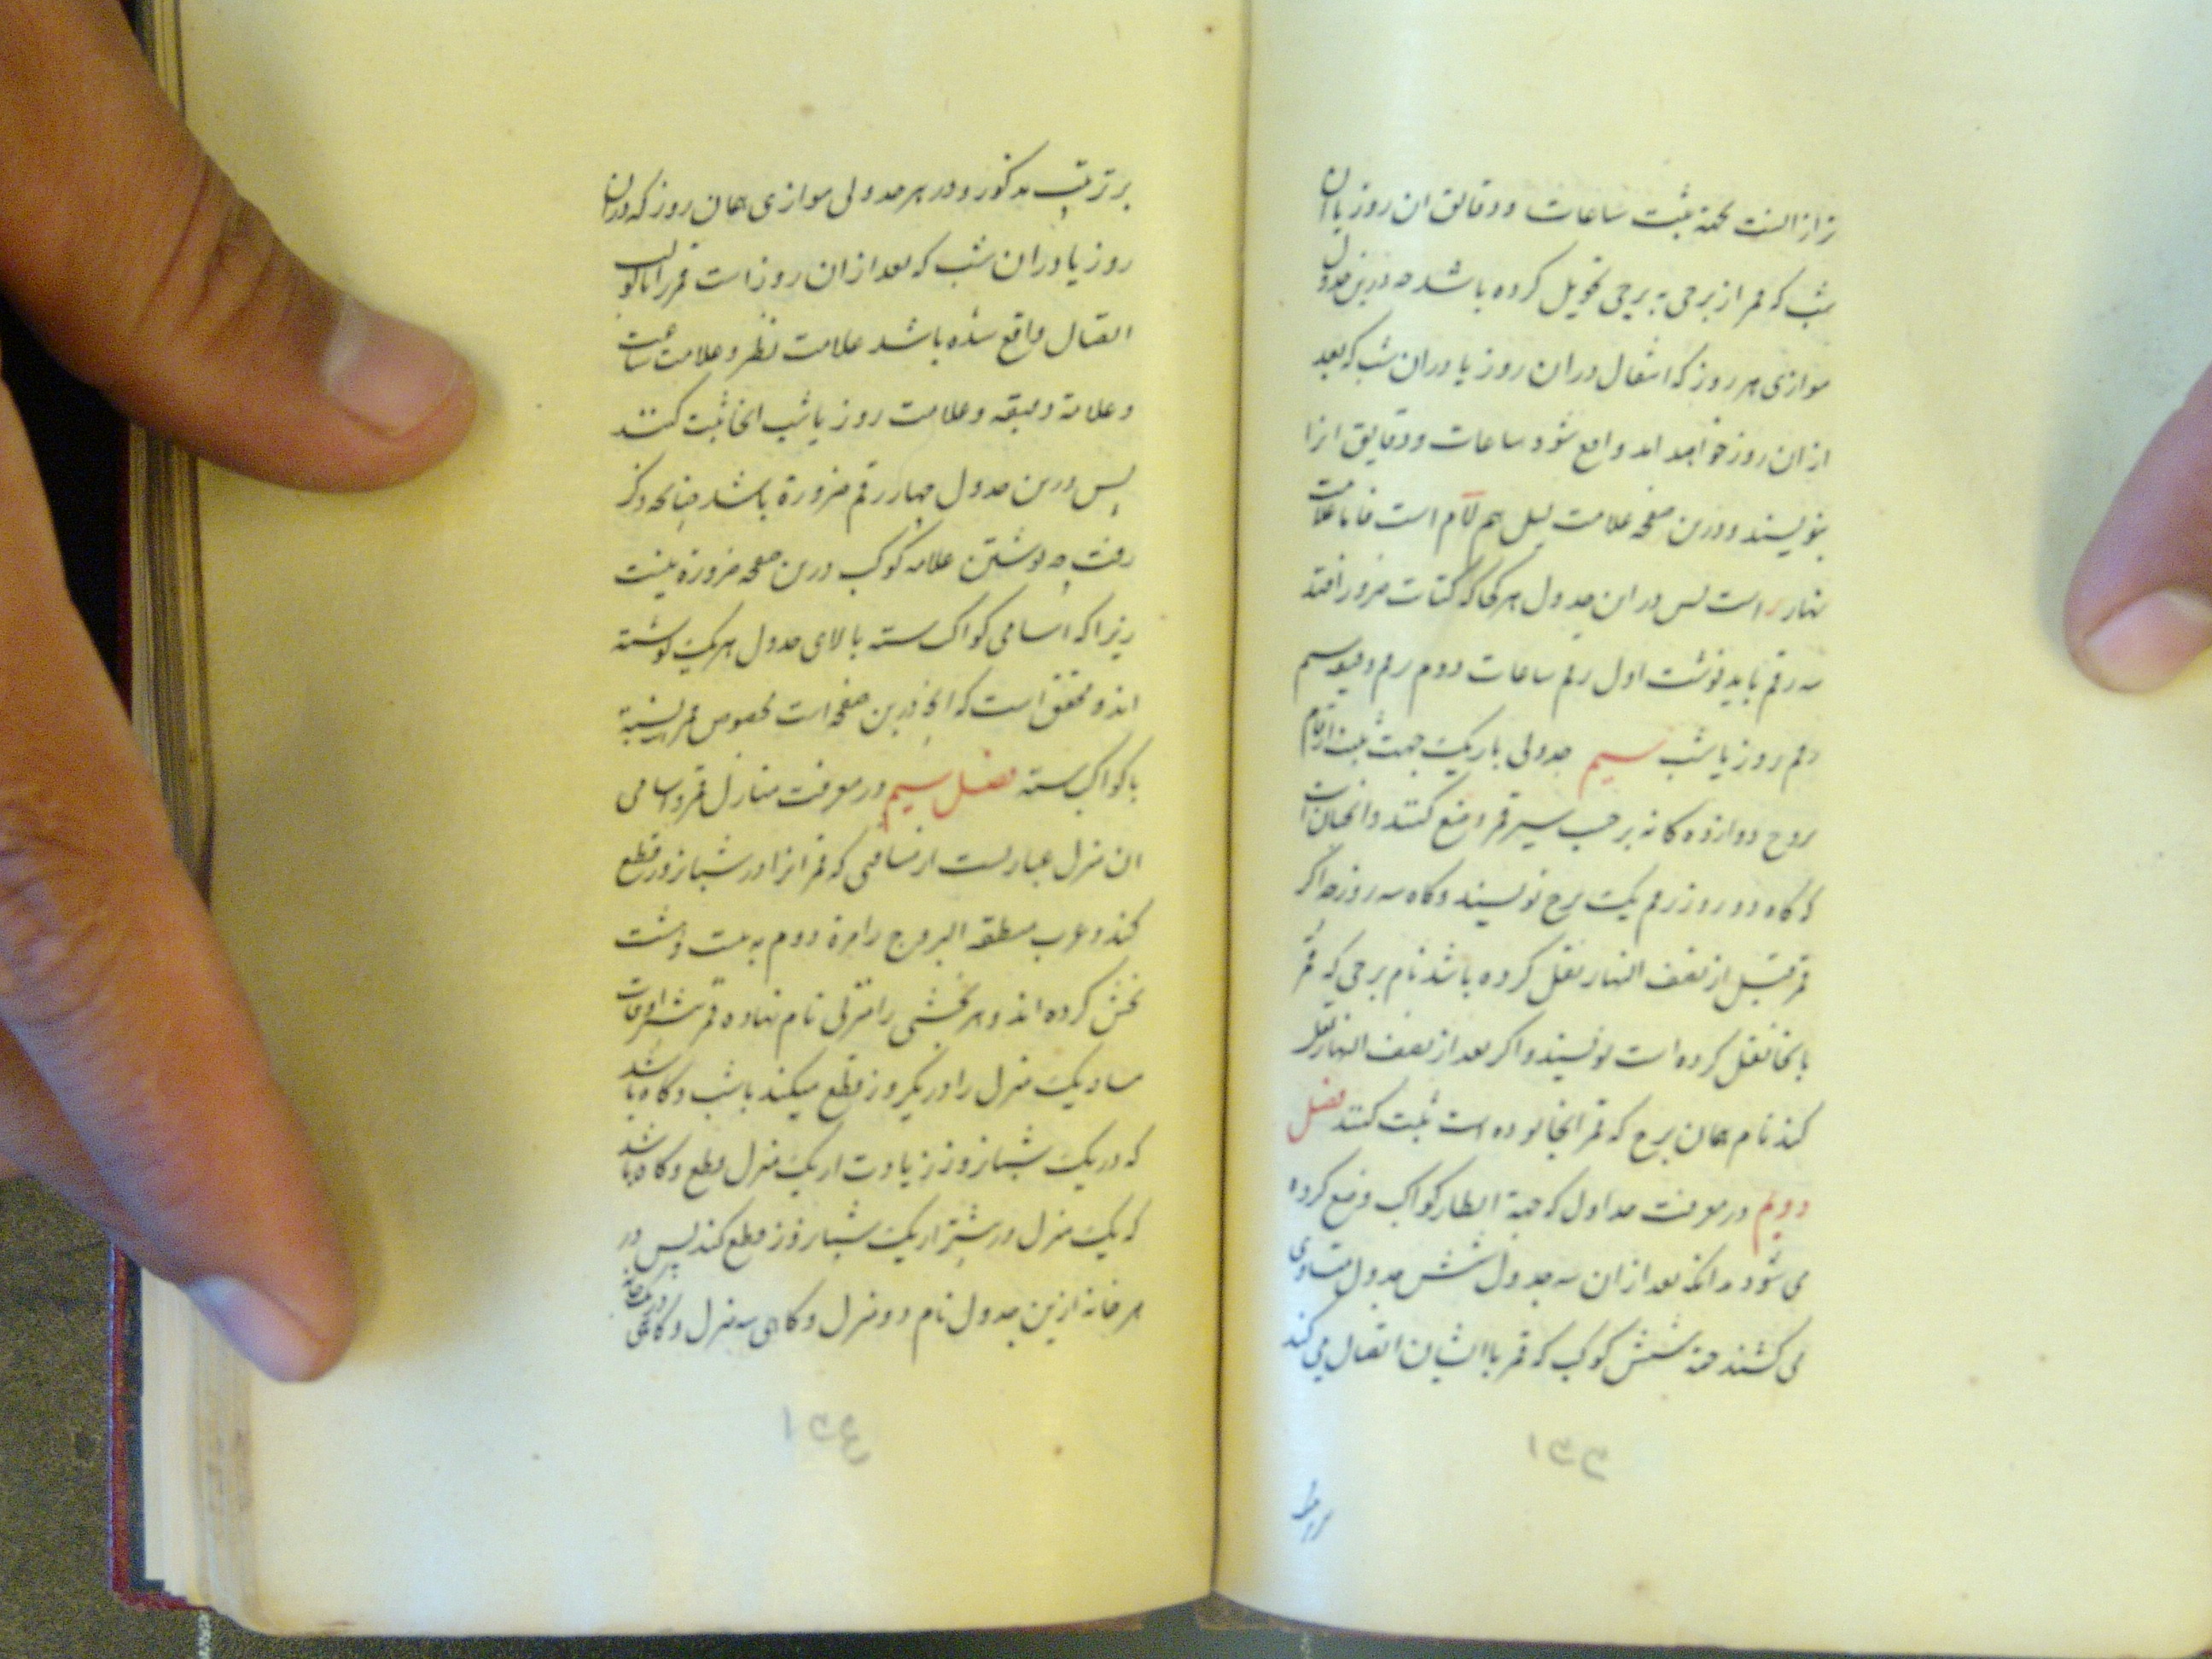 تر از انست بجهة ثبت ساعات و دقایق ان روز یا ان
شب که قمر از برجی به برجی تحویل کرده باشد چه درین جدول
موازی هر روز که انتقال در ان روز یا در ان شب که بعد
از ان روز خواهد امد واقع شود ساعات و دقایق انرا
بنویسند و درین صفحه علامت لیل هم لام است فاما علامت
نهار ر است پس در ان جدول هر کجا که کتابت ضرور افتد
سه رقم باید نوشت اول رقم ساعات دوم رقم دقیقه سیم
رقم روز یا شب سیم جدولی باریک جهت ثبت ارقام
بروج دوازده کانه بر حسب سیر قمر وضع کنند و انچنان است
که کاه دو روز رقم یک برج نویسند و کاه سه روز چه اکر
قمر قبل از نصف النهار نقل کرده باشد نام برجی که قمر
بانجا نقل کرده است نویسند و اکر بعد از نصف النهار نقل
کند نام همان برج که قمر انجا بوده است ثبت کنند فصل
دویم در معرفت جداول که جهة انظار کواکب وضع کرده
می شود بدانکه بعد از ان سه جدول شش جدول متساوی
می کشند جهة شش کوکب که قمر با ایشان اتصال می کند
۱۵۳
بر ترتیب مذکور و در هر جدولی موازی همان روز که در ان
روز یا در ان شب که بعد از ان روز است قمر را با کوکب
اتصال واقع شده باشد علامت نظر و علامت ساعت
و علامة دقیقه و علامت روز یا شب انجا ثبت کنند
پس درین جدول چهار رقم ضرورة باشد چنانکه ذکر
رفت چه نوشتن علامه کوکب درین صفحه ضرورة نیست
زیرا که اسامی کواکب سته بالای جدول هر یک نوشته
اند و محقق است که انچه درین صفحه است مخصوص قمر بنسبة
با کواکب سته فصل سیم در معرفت منازل قمر و اسامی
ان منزل عبارتست از مسافتی که قمر انرا در شبانروز قطع
کند و عرب منطقه البروج را مرة دوم به بیست و هشت
بخش کرده اند و هر بخشی را منزلی نام نهاده قمر بیشتر اوقات
یک منزل را در یکروز قطع میکند یا شب و کاه باشد
که در یک شبانروز زیادت از یک منزل قطع و کاه باشد
که یک منزل در بیشتر از یک شبانروز قطع کند پس در
هر خانه ازین جدول نام دو منزل و کاهی سه منزل و کاهی در یک خانه
۱۵۴